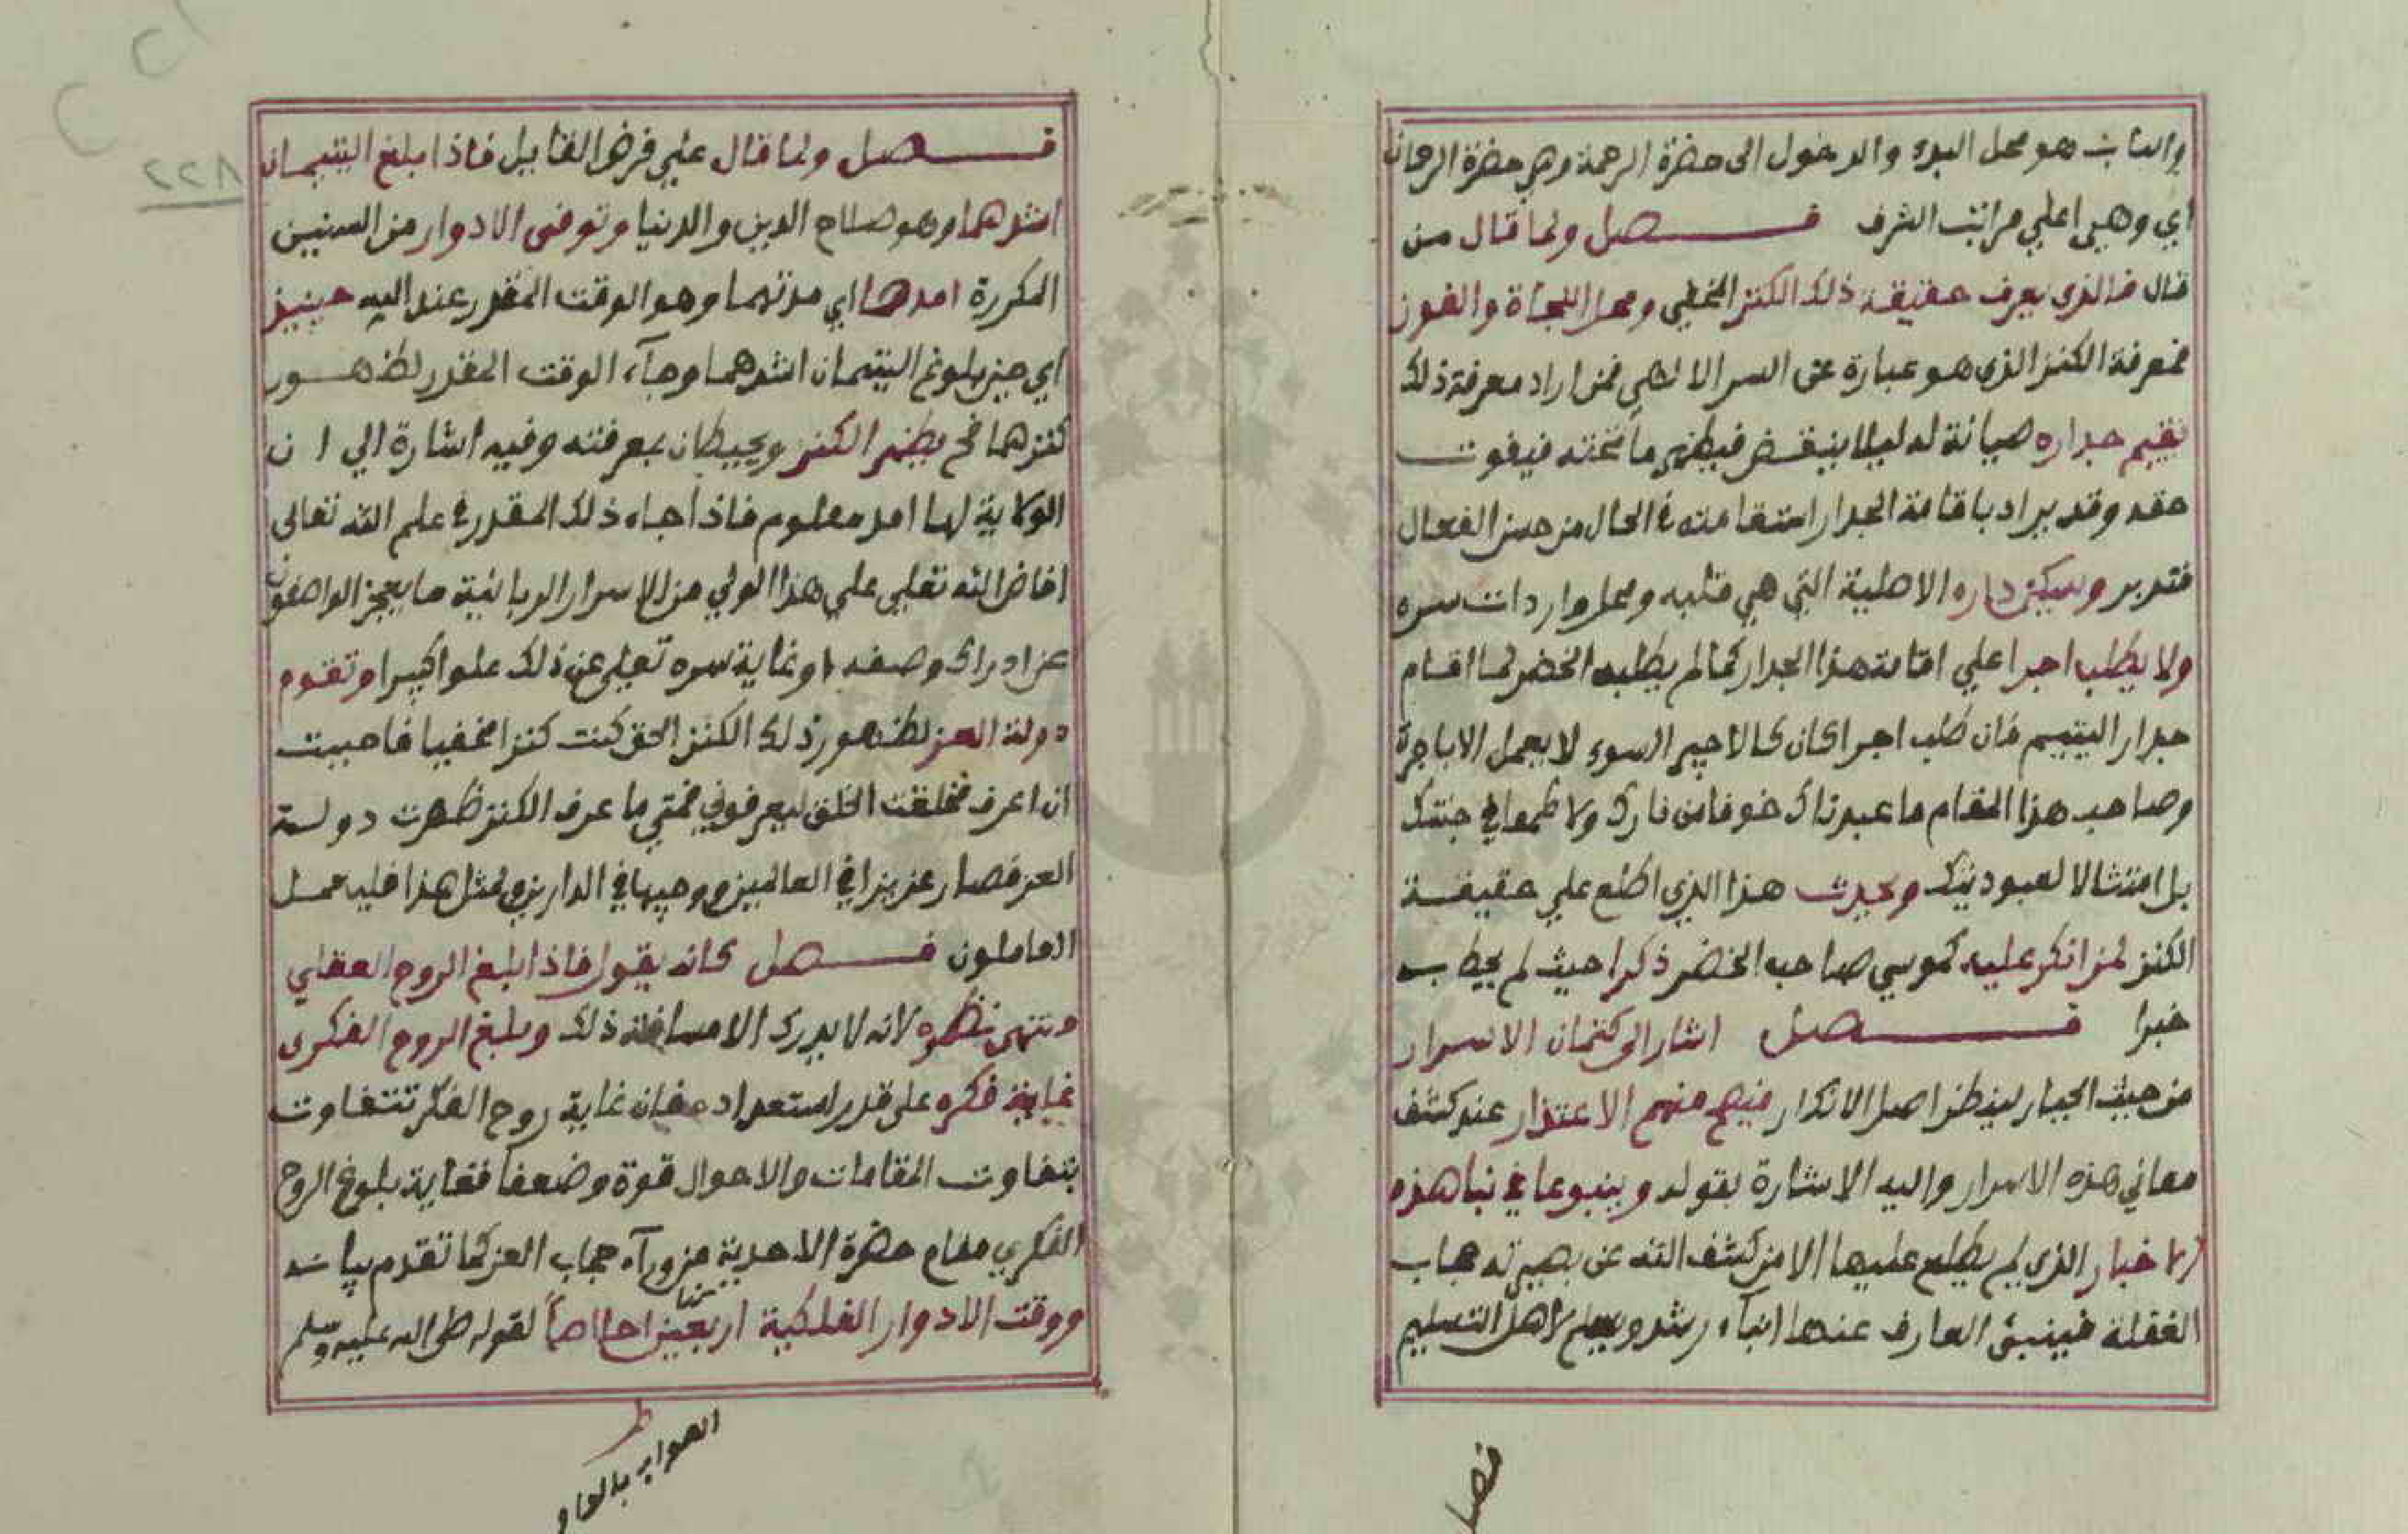 والباب هو محل البدء والدخول الى حضرة الرحمة وهي حضرة الرحمان
اي وهي اعلي مراتب الشرف فصل ولما قال من
قال فالذي يعرف حقيقة ذلك الكنز المخفي ومحل النجاة والفوز
بمعرفة الكنز الذي هو عبارة عن السر الالهي فمن اراد معرفة ذلك
يقيم جداره صيانة له ليلا ينقض فيظهر ما تحته فيفوت
حقه وقد يراد باقامة الجدار استقامته في الحال من حسن الفعال
فتدبر ويسكن داره الاصلية التي هي قلبه ومحل واردات سره
ولا يطلب اجرا علي اقامة هذا الجدار كما لم يطلبه الخضر لما اقام
جدار اليتيم فان طلب اجرا كان كالاجير السوء لا يعمل الا باجرة
وصاحب هذا المقام ما عبدناك خوفا من نارك ولا طمعا في جنتك
بل امتثالا لعبوديتك ويحدث هذا الذي اطلع علي حقيقة
الكنز لمن انكر عليه كموسي صاحب الخضر ذكرا حيث لم يحط به
خبرا فصل اشار الى كتمان الاسرار
من حيث الجبار لينظر اصل الانكار فيهم منهم الاعتذار عند كشف
معاني هذه الاسرار واليه الاشارة بقوله وينبوعا في نبا هذه
الاخبار الذي لم يطلع عليها الا من كشف الله عن بصيرته حجاب
الغفلة فينبئ العارف عنها انباء رشد ويسلم لاهل التسليم
فصل
٨٢٢
فصل ولما قال علي فرض القايل فاذا بلغ اليتيمان
اشدهما وهو صلاح الدين والدنيا وتوفى الادوار من السنين
المكررة امدها اي مدتهما وهو الوقت المقدر عند اليه حينيذ
اي حين بلوغ اليتيمان اشدهما وجآء الوقت المقدر لظهور
كنزهما فح يظهر الكنز ويحيطان بمعرفته وفيه اشارة الي ان
الولاية لها امد معلوم فاذا جاء ذلك المقدر في علم الله تعالى
افاض الله تعلي علي هذا الولي من الاسرار الربانية ما يعجز الواصفون
عن ادراك وصفه وغاية سره تعلي عن ذلك علوا كبيرا وتقوم
دولة العز لظهور ذلك الكنز الحق كنت كنزا مخفيا فاحببت
ان اعرف فخلقت الخلق ليعرفوني فمتي ما عرف الكنز ظهرت دولة
العز فصار عزيزا في العالمين ووجيها في الدارين ولمثل هذا فليعمل
العاملون فصل كانه يقول فاذا بلغ الروح العقلي
منتهى نظره لانه لا يدرك الا مسافة ذلك وبلغ الروح الفكري
غاية فكره على قدر استعداده فان غاية روح الفكر تتفاوت
بتفاوت المقامات والاحوال قوة وضعفا فغاية بلوغ الروح
الفكري مقام حضرة الاحدية من ورآء حجاب العز كما تقدم بيانه
ووقت الادوار الفلكية اربعين صباحا لقوله صلى الله عليه وسلم
ط
الصواب بالهاء